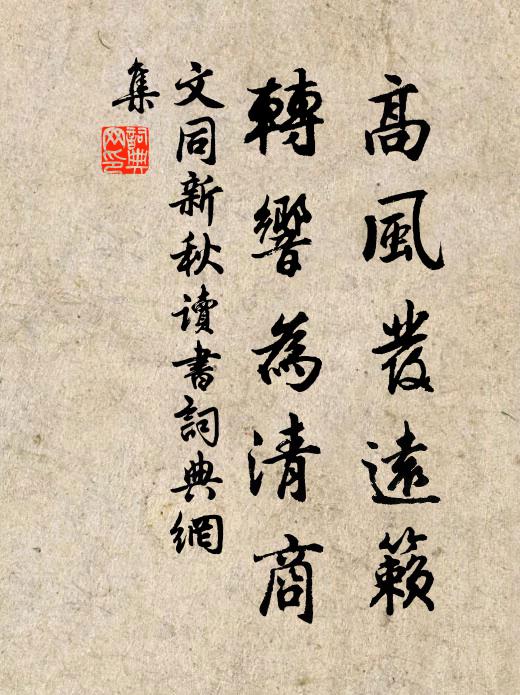 高風發遠籟
轉響為清商
文同新秋讀書詞典網
集
詞典
网印